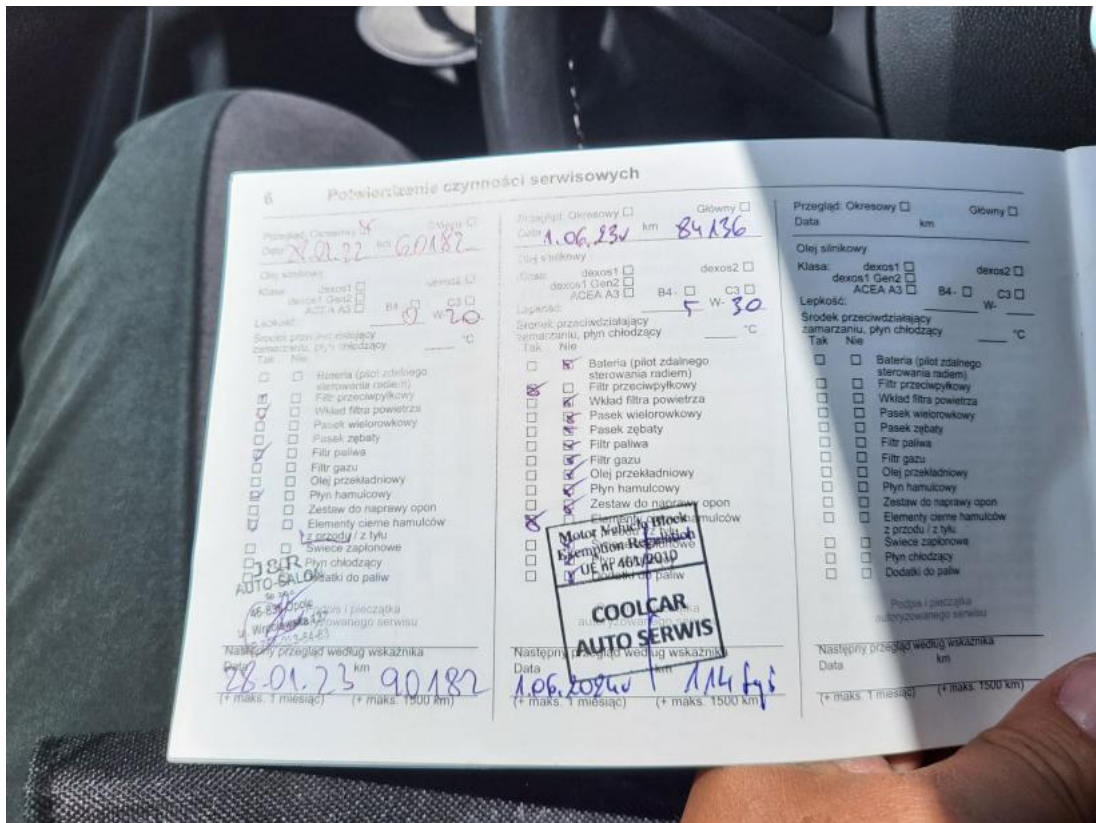 6 Potwierdzenie czynności serwisowych
Przegląd: Okresowy Główny
Data 28.01.22 km 60182
Olej silnikowy
Klasa: dexos1 dexos2
dexos1 Gen2
ACEA A3 B4- C3
Lepkość: 0 W- 20
Środek przeciwdziałający
zamarzaniu, płyn chłodzący °C
Tak Nie
Bateria (pilot zdalnego
sterowania radiem)
Filtr przeciwpyłkowy
Wkład filtra powietrza
Pasek wielorowkowy
Pasek zębaty
Filtr paliwa
Filtr gazu
Olej przekładniowy
Płyn hamulcowy
Zestaw do naprawy opon
Elementy cierne hamulców
z przodu / z tyłu
Świece zapłonowe
Płyn chłodzący
Dodatki do paliw
AUTO-SALON
Opole
Podpis i pieczątka
autoryzowanego serwisu
Następny przegląd według wskaźnika
Data km
28.01.23 90182
(+ maks. 1 miesiąc) (+ maks. 1500 km)
Przegląd: Okresowy Główny
Data 1.06.23r km 84136
Olej silnikowy
Klasa: dexos1 dexos2
dexos1 Gen2
ACEA A3 B4- C3
Lepkość: 5 W- 30
Środek przeciwdziałający
zamarzaniu, płyn chłodzący °C
Tak Nie
Bateria (pilot zdalnego
sterowania radiem)
Filtr przeciwpyłkowy
Wkład filtra powietrza
Pasek wielorowkowy
Pasek zębaty
Filtr paliwa
Filtr gazu
Olej przekładniowy
Płyn hamulcowy
Zestaw do naprawy opon
Elementy cierne hamulców
z przodu / z tyłu
Świece zapłonowe
Płyn chłodzący
Dodatki do paliw
Motor Vehicle Block
Exemption Regulation
UE nr 461/2010
COOLCAR
AUTO SERWIS
autoryzowanego serwisu
Następny przegląd według wskaźnika
Data km
1.06.2024r 114 tyś
(+ maks. 1 miesiąc) (+ maks. 1500 km)
Przegląd: Okresowy Główny
Data km
Olej silnikowy
Klasa: dexos1 dexos2
dexos1 Gen2
ACEA A3 B4- C3
Lepkość: W-
Środek przeciwdziałający
zamarzaniu, płyn chłodzący °C
Tak Nie
Bateria (pilot zdalnego
sterowania radiem)
Filtr przeciwpyłkowy
Wkład filtra powietrza
Pasek wielorowkowy
Pasek zębaty
Filtr paliwa
Filtr gazu
Olej przekładniowy
Płyn hamulcowy
Zestaw do naprawy opon
Elementy cierne hamulców
z przodu / z tyłu
Świece zapłonowe
Płyn chłodzący
Dodatki do paliw
Podpis i pieczątka
autoryzowanego serwisu
Następny przegląd według wskaźnika
Data km
(+ maks. 1 miesiąc) (+ maks. 1500 km)